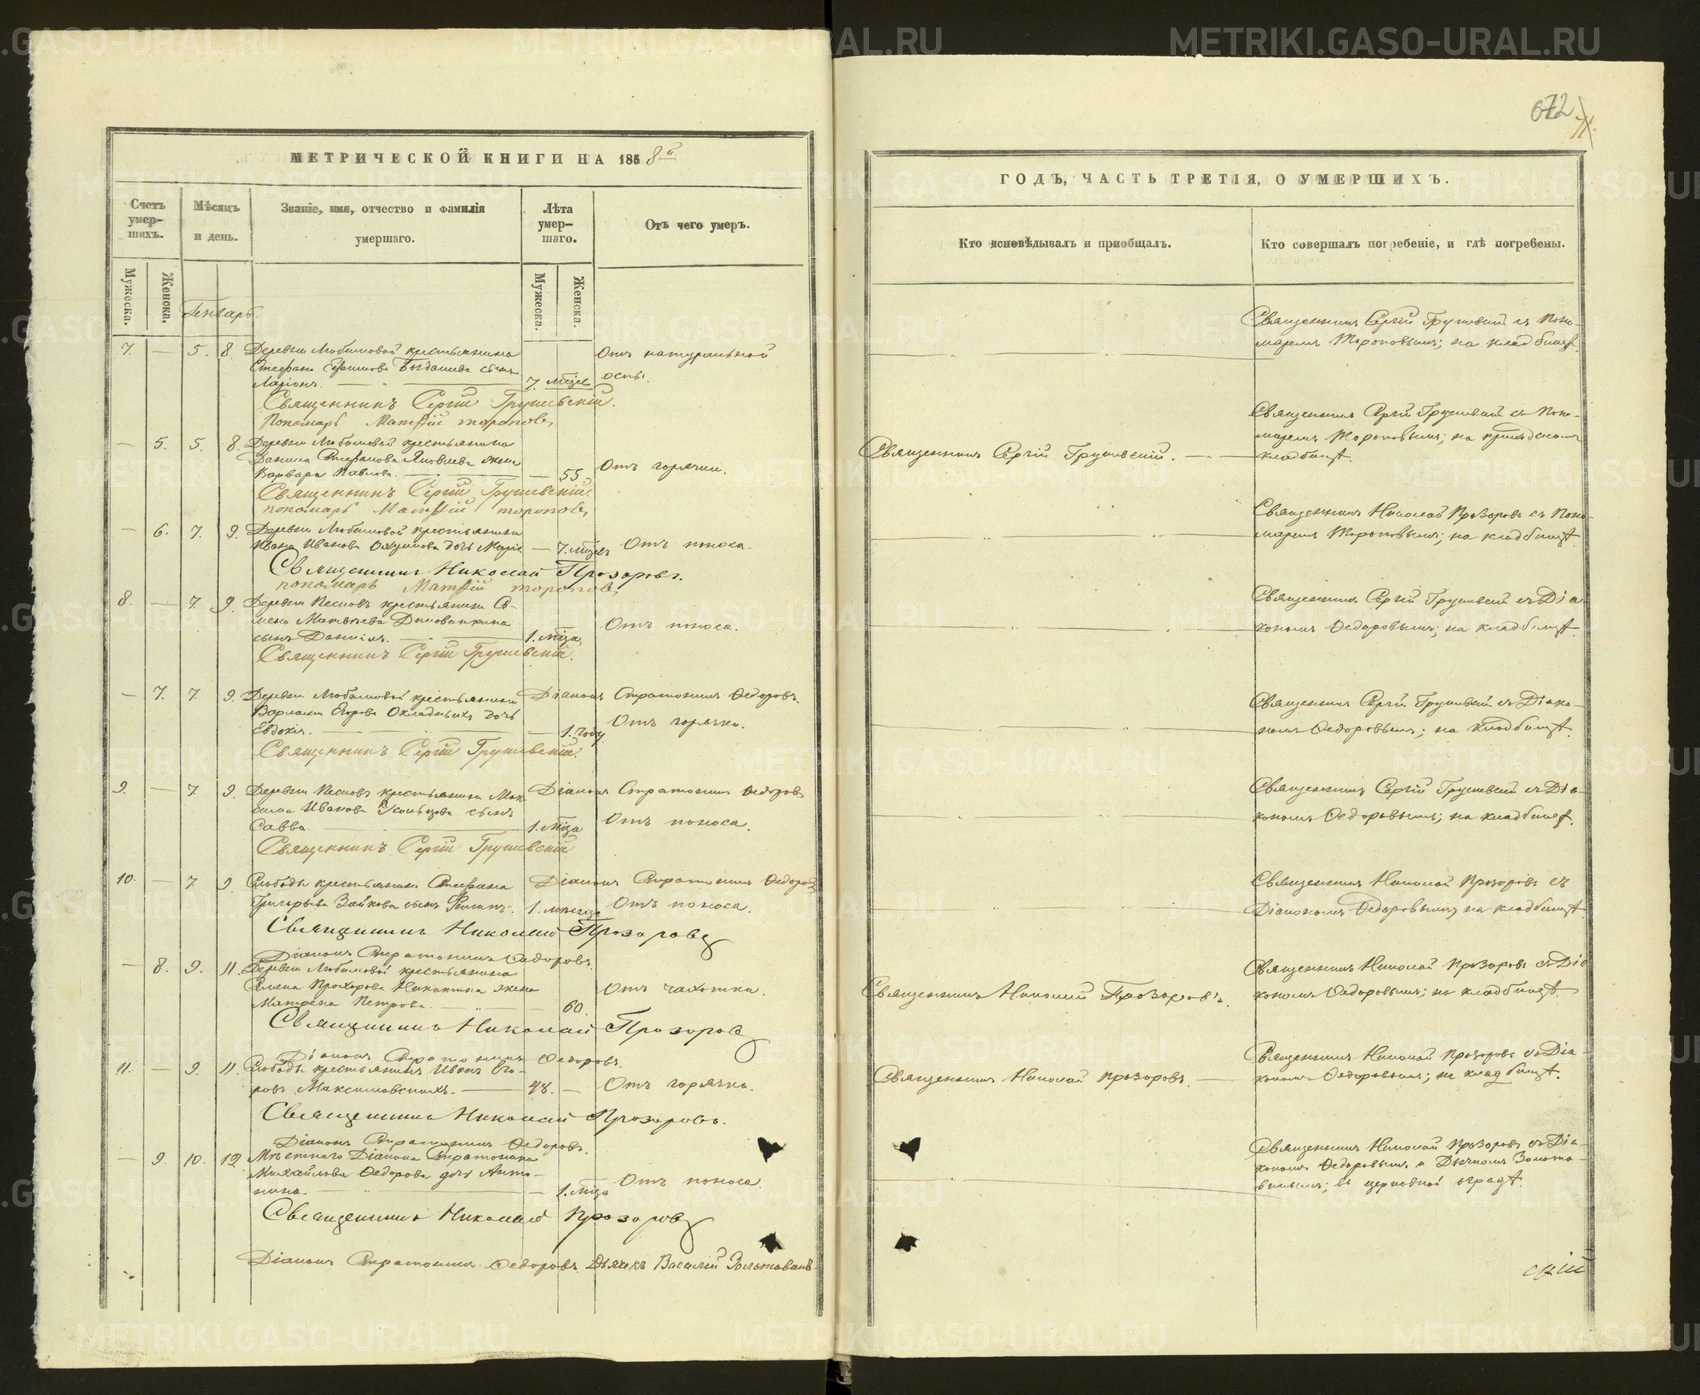 МЕТРИЧЕСКОЙ КНИГИ НА 1858й
Счетъ умер-шихъ.
Мѣсяцъ и день.
Званіе, имя, отчество и фамилія умершаго.
Лѣта умер-шаго.
Отъ чего умеръ.
Мужеска.
Женска.
Мужеска.
Женска.
Генварь
7. — 5. 8. Деревни Любимовой крестьянина
Стефана Богданова сынъ
Ларіонъ. — 7. мѣся. Отъ натуральной
оспы.
Священникъ Сергій Грушевскій.
Пономарь Матѳій Торопов
— 5. 5. 8. Деревни Любимовой крестьянина
Данила Стефанова Яковлева жена
Варвара Павлова — 55 Отъ горячки.
Священникъ Сергій Грушевскій.
пономарь Матѳій Торопов
— 6. 7. 9. Деревни Любимовой крестьянина
Ивана Иванова дочь Марія — 7. мѣся. Отъ поноса.
Священникъ Николай Прозоровъ.
пономарь Матѳій Торопов.
8. — 7. 9. Деревни крестьянина Се-
мена Матвѣева
сынъ Даниилъ. — 1. мѣся. Отъ поноса.
Священникъ Сергій Грушевскій.
— 7. 7. 9. Деревни Любимовой крестьянина Діаконъ Стратоникъ Ѳедоровъ.
Варлаама Егорова Окладныхъ дочь
Евдокія. — 1. году Отъ горячки.
Священникъ Сергій Грушевскій.
9. — 7. 9. Деревни крестьянина Мак- Діаконъ Стратоникъ Ѳедоровъ
сима Иванова сынъ
Савва — 1. мѣся Отъ поноса.
Священникъ Сергій Грушевскій
10. — 7 9. Слободы крестьянина Стефана Діаконъ Стратоникъ Ѳедоровъ
Григорьева Зайкова сынъ Филипъ. 1. мѣсяца Отъ поноса.
Священникъ Николай Прозоровъ
Діаконъ Стратоникъ Ѳедоровъ.
— 8. 9. 11. Деревни Любимовой крестьянина
Прохорова Никитина жена
Матрена Петрова. — 60. Отъ чахотки.
Священникъ Николай Прозоровъ
Діаконъ Стратоникъ Ѳедоровъ.
11. — 9. 11. Слободы крестьянинъ Иванъ Его-
ровъ Максимовскихъ. — 48. — Отъ горячки.
Священникъ Николай Прозоровъ.
Діаконъ Стратоникъ Ѳедоровъ.
— 9. 10. 12. Мѣстнаго Діакона Стратоника
Михайлова Ѳедорова дочь Анто-
нина. — 1. мѣся Отъ поноса.
Священникъ Николай Прозоровъ
Діаконъ Стратоникъ Ѳедоровъ. Дьячекъ Василій Золотавинъ
672
ГОДЪ, ЧАСТЬ ТРЕТІЯ, О УМЕРШИХЪ.
Кто исповѣдывалъ и пріобщалъ.
Кто совершалъ погребеніе, и гдѣ погребены.
Священникъ Сергій Грушевскій съ Поно-
маремъ Тороповымъ; на кладбищѣ.
Священникъ Сергій Грушевскій. —
Священникъ Сергій Грушевскій съ Поно-
маремъ Тороповымъ; на приходскомъ
кладбищѣ.
Священникъ Николай Прозоровъ съ Поно-
маремъ Тороповымъ; на кладбищѣ.
Священникъ Сергій Грушевскій съ Діа-
кономъ Ѳедоровымъ; на кладбищѣ.
Священникъ Сергій Грушевскій съ Діако-
номъ Ѳедоровымъ; на кладбищѣ.
Священникъ Сергій Грушевскій съ Діа-
кономъ Ѳедоровымъ; на кладбищѣ.
Священникъ Николай Прозоровъ съ
Діакономъ Ѳедоровымъ; на кладбищѣ.
Священникъ Николай Прозоровъ.
Священникъ Николай Прозоровъ съ Діа-
кономъ Ѳедоровымъ; на кладбищѣ.
Священникъ Николай Прозоровъ. —
Священникъ Николай Прозоровъ съ Діа-
кономъ Ѳедоровымъ; на кладбищѣ.
Священникъ Николай Прозоровъ съ Діа-
кономъ Ѳедоровымъ и Дьячкомъ Золота-
винымъ; въ церковной оградѣ.
METRIKI.GASO-URAL.RU